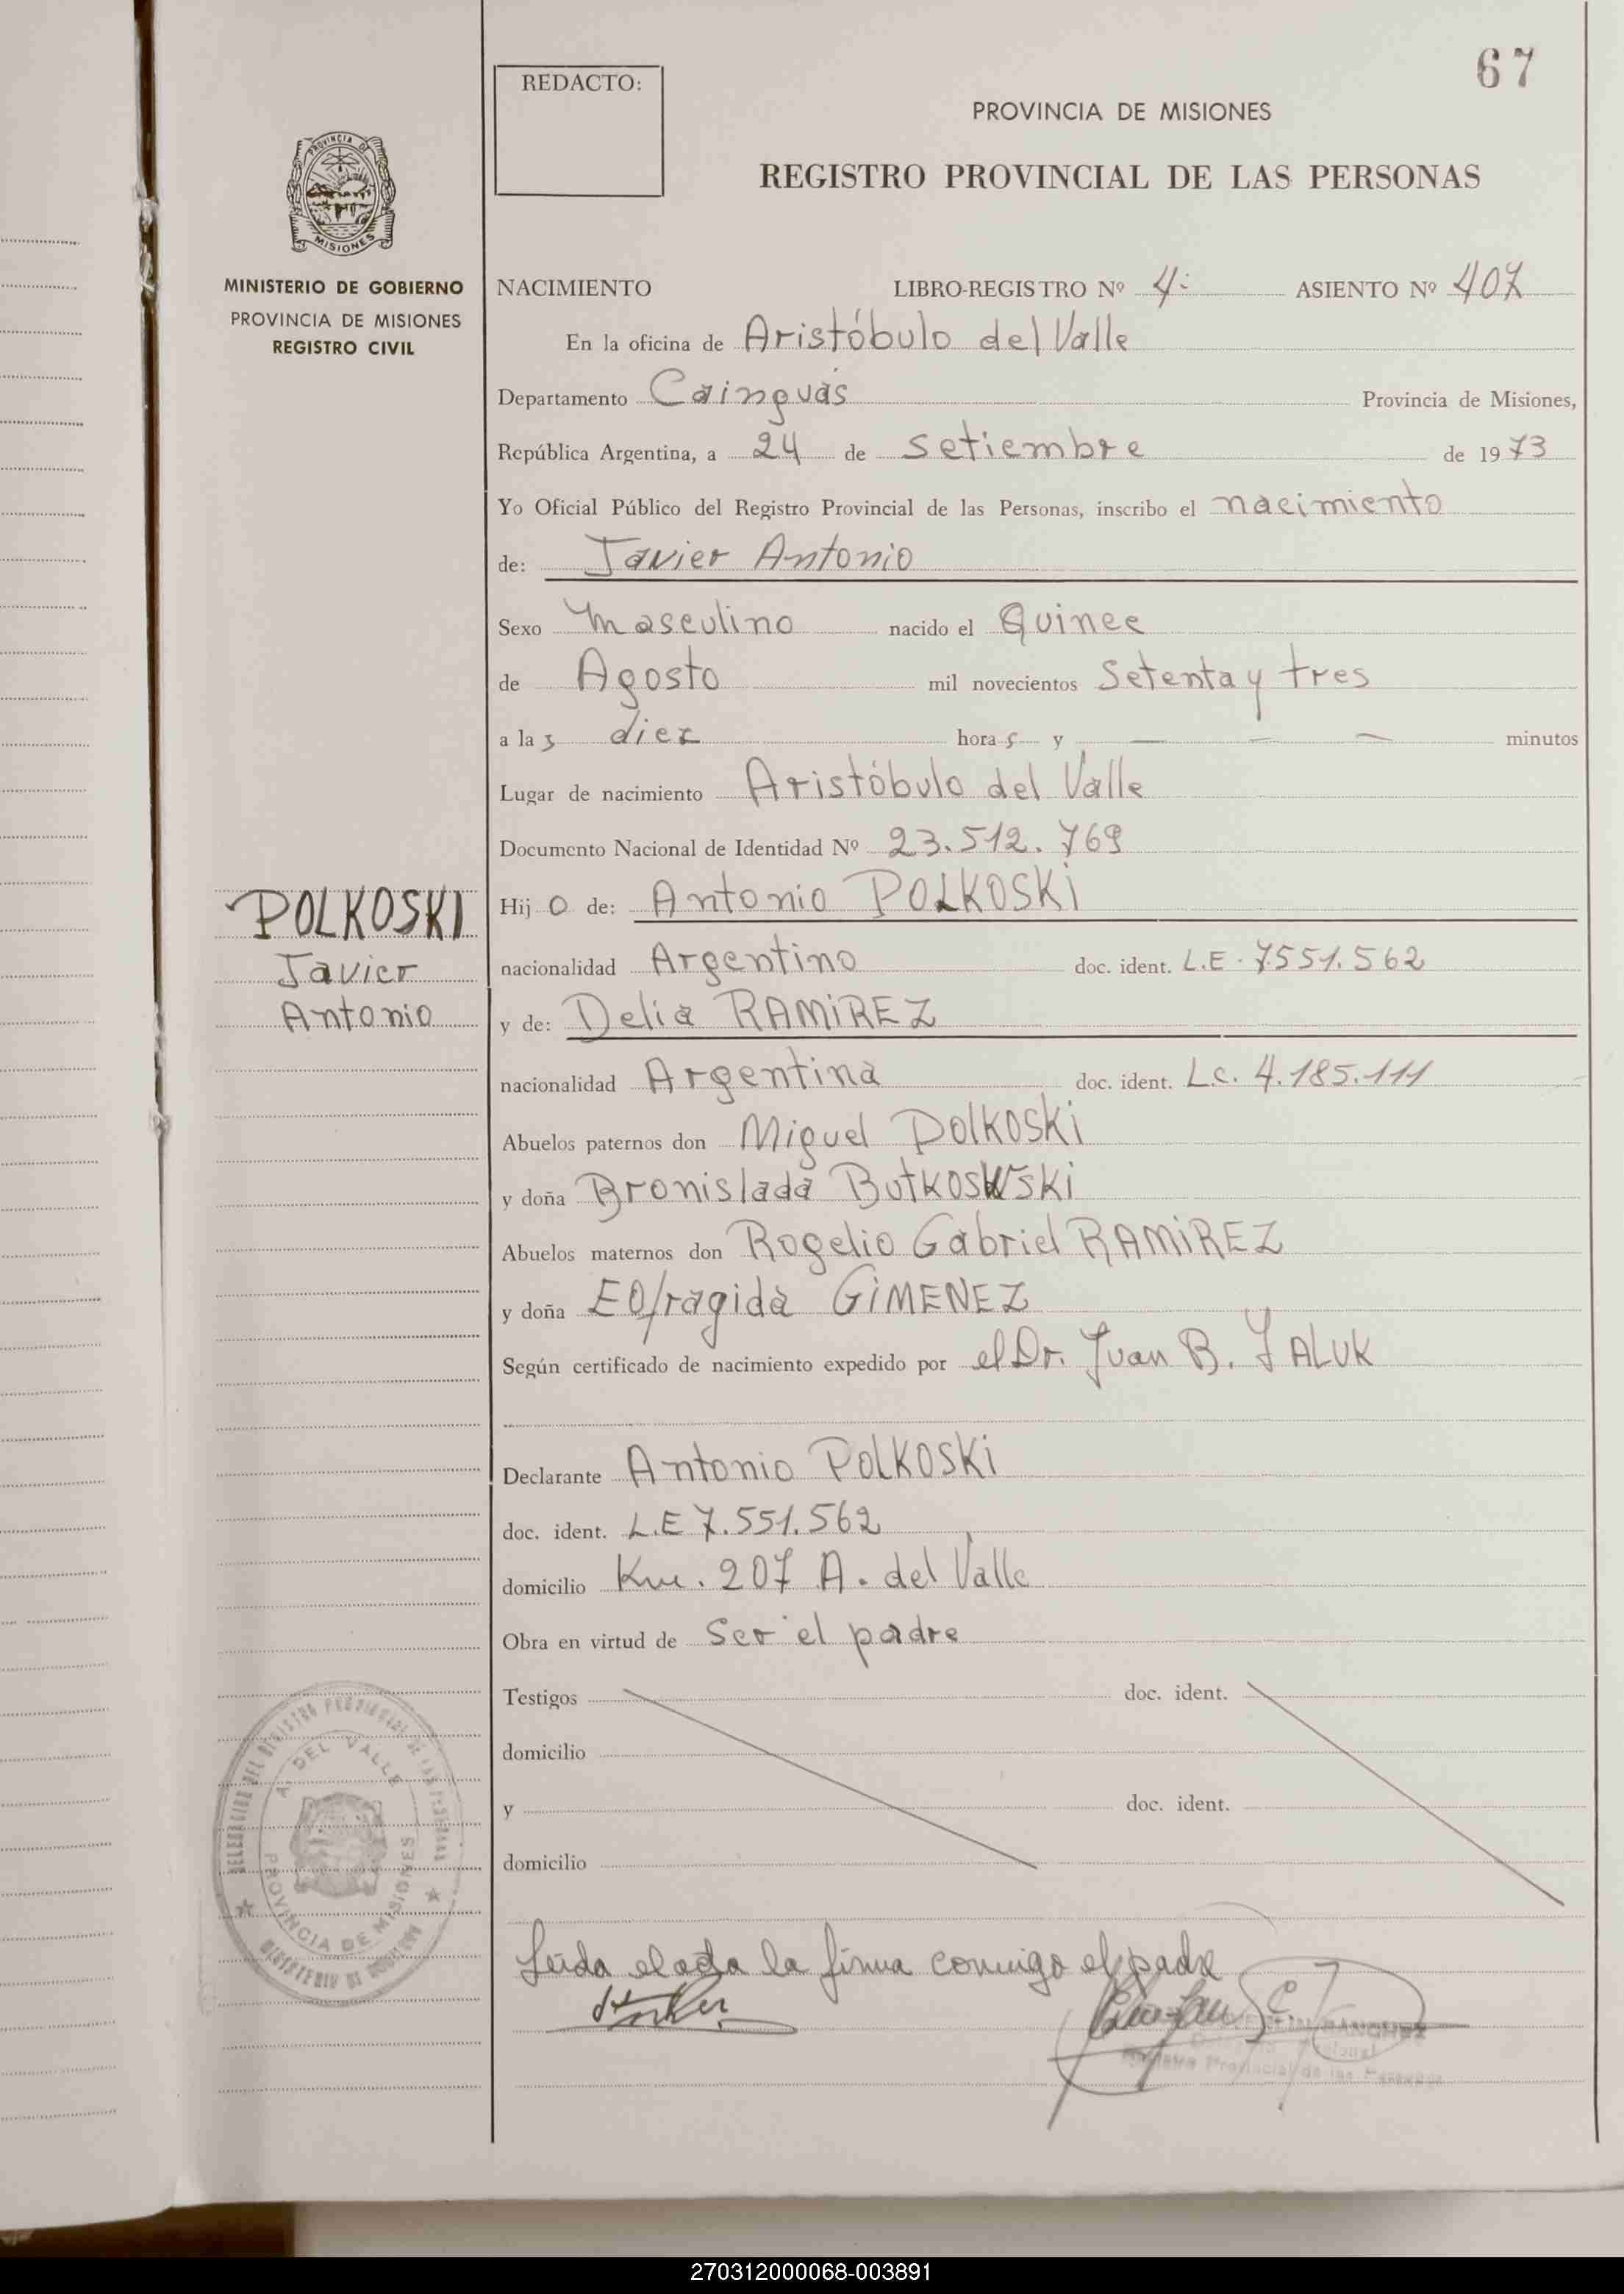 67
REDACTO:
PROVINCIA DE MISIONES
REGISTRO PROVINCIAL DE LAS PERSONAS
PROVINCIA DE
MISIONES
MINISTERIO DE GOBIERNO
PROVINCIA DE MISIONES
REGISTRO CIVIL
NACIMIENTO LIBRO-REGISTRO Nº 4: ASIENTO Nº 407
En la oficina de Aristóbulo del Valle
Departamento Cainguás Provincia de Misiones,
República Argentina, a 24 de setiembre de 1973
Yo Oficial Público del Registro Provincial de las Personas, inscribo el nacimiento
de: Javier Antonio
Sexo Masculino nacido el Quince
de Agosto mil novecientos Setenta y tres
a las diez horas y — — — minutos
Lugar de nacimiento Aristóbulo del Valle
Documento Nacional de Identidad Nº 23.512.769
POLKOSKI
Javier
Antonio
Hijo de: Antonio POLKOSKI
nacionalidad Argentino doc. ident. L.E. 7551.562
y de: Delia RAMIREZ
nacionalidad Argentina doc. ident. L.C. 4.185.111
Abuelos paternos don Miguel Polkoski
y doña Bronislada Butkoswski
Abuelos maternos don Rogelio Gabriel RAMIREZ
y doña EOfragida GIMENEZ
Según certificado de nacimiento expedido por el Dr. Juan B.
Declarante Antonio POLKOSKI
doc. ident. L.E 7.551.562
domicilio Km. 207 A. del Valle
Obra en virtud de Ser el padre
Testigos doc. ident.
domicilio
y doc. ident.
domicilio
DELEGACION DEL REGISTRO PROVINCIAL DE LAS PERSONAS
A. DEL VALLE
PROVINCIA DE MISIONES
MINISTERIO DE GOBIERNO
Leída el acta la firma conmigo el padre
SANCHEZ
Registro Provincial de las Personas
270312000068-003891